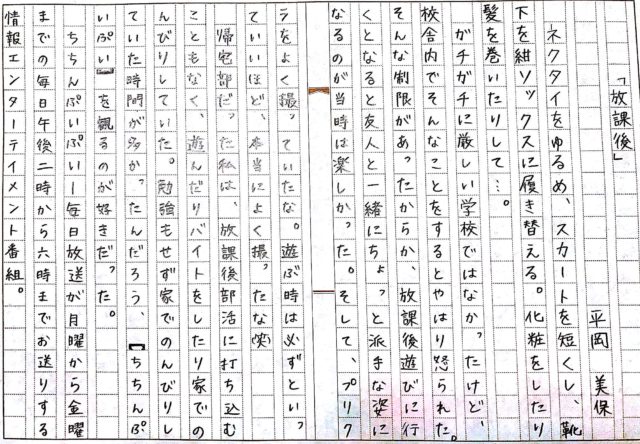 「放課後」
平岡 美保
ネクタイをゆるめ、スカートを短くし、靴
下を紺ソックスに履き替える。化粧をしたり
髪を巻いたりして…。
ガチガチに厳しい学校ではなかったけど、
校舎内でそんなことをするとやはり怒られた。
そんな制限があったからか、放課後遊びに行
くとなると友人と一緒にちょっと派手な姿に
なるのが当時は楽しかった。そして、プリク
ラをよく撮っていたな。遊ぶ時は必ずといっ
ていいほど、本当によく撮ったな笑
帰宅部だった私は、放課後部活に打ち込む
こともなく、遊んだりバイトをしたり家での
んびりしていた。勉強もせず家でのんびりし
ていた時間が多かったんだろう、【ちちんぷ
いぷい】を観るのが好きだった。
ちちんぷいぷいー毎日放送が月曜から金曜
までの毎日午後二時から六時までお送りする
情報エンターテイメント番組。